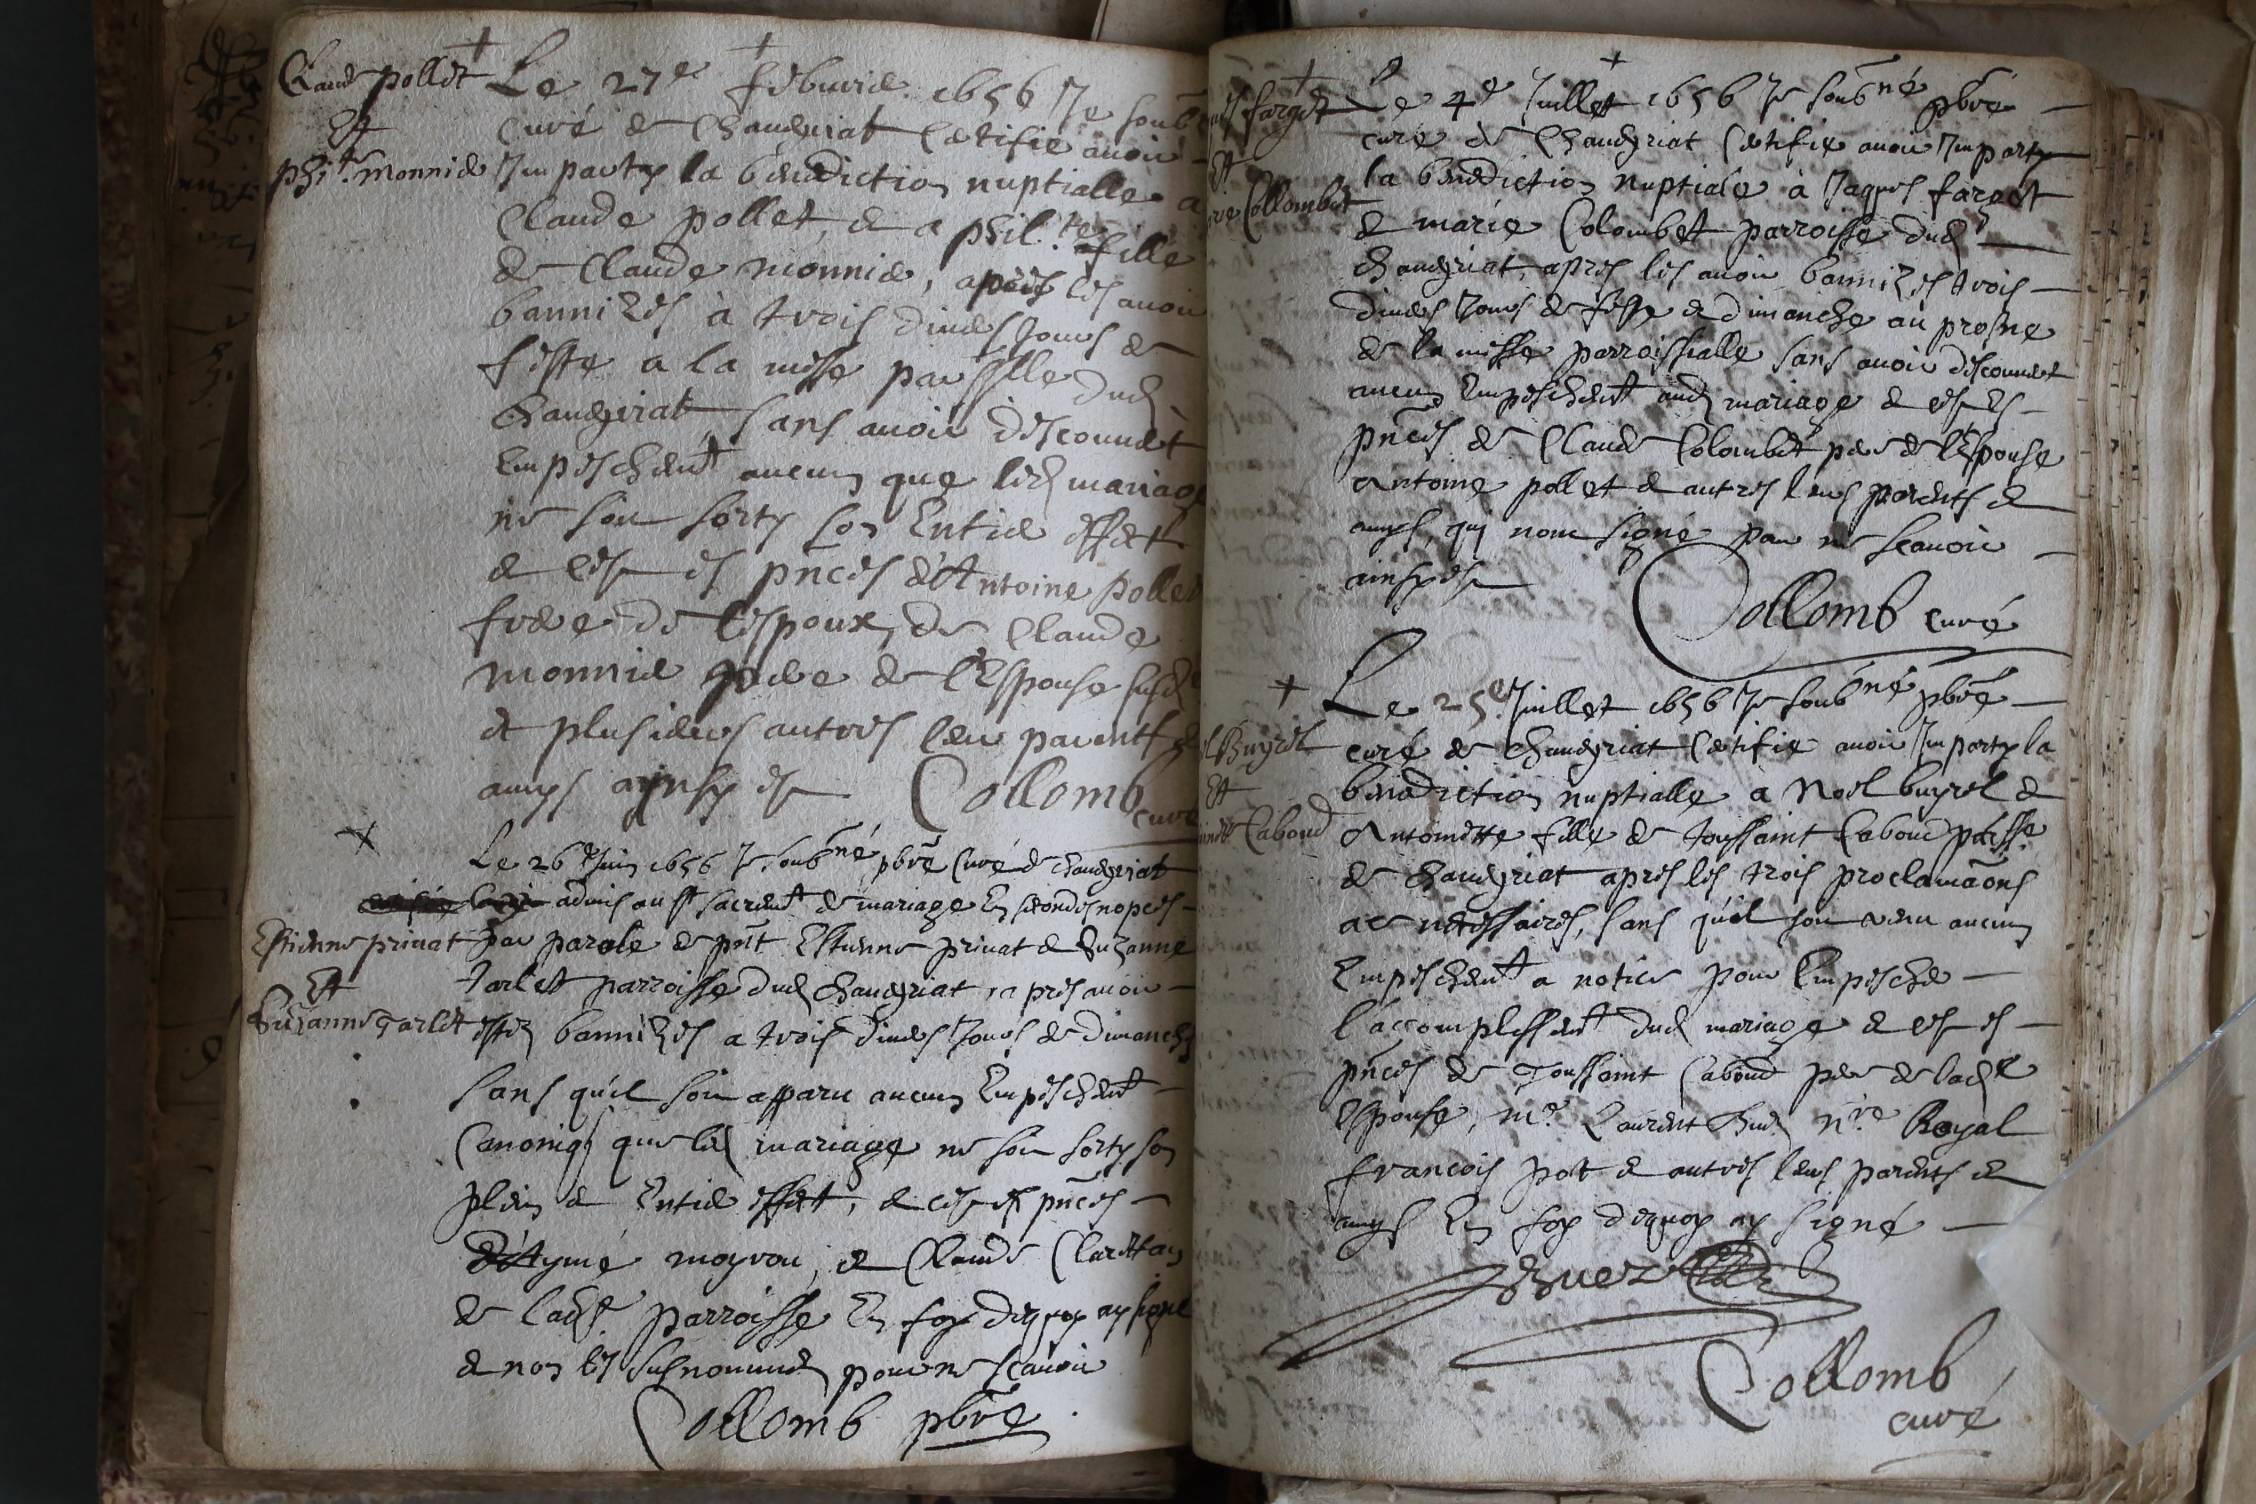 Claude pollet
Et
phi.te monnier
Le 27e febvrier 1656 Je soub
curé de Chaveyriat Certifie avoir
Imparty la benediction nuptialle a
Claude pollet, & a phil.te fille
de Claude monnier, apres les avoir
bannizes à trois divers Jours de
feste a la messe par
Chaveyriat, sans avoir descouvert
Empeschent aucun que led mariage
ne soit sorty son Entier effect
& ces es pnces d'Antoine pollet
frere de l'espoux, de Claude
monnier pere de l'Espouse susd
et plusieurs autres leur parents &
amys aynsy est Collomb
curé
Le 26e Juin 1656 Je soubné pbre Curé de chaveyriat
admis au st sacrent de mariage En secondes nopces
Estienne privat
Et
Suzanne Tarlet
par parole de pnt Estienne privat & Suzanne
tarlet parroisse dud chaveyriat apres avoir
estez bannizes a trois divers Jours de dimanche
sans quil soit apparu aucun Empeschent
Canoniq que led mariage ne soit sorty son
plein & Entier effect, & ces es pnces
moyrou, & Claude
de lad.e parroisse En foy dequoy ay signé
& non les susnommed pour ne scavoir
Collomb pbre
farget
Et
Collombet
Le 4e Juillet 1656 Je soubné pbre
curé de Chaveyriat Certifie avoir Imparty
la benediction nuptiale à Jaques farget
& marie Colombet parroisse dud
chaveyriat, apres les avoir bannizes trois
divers Jours de feste & dimanche au prosne
de la messe parroissialle sans avoir descouvert
aucun Empeschent aud mariage & ces es
pnces de Claude Colombet pere de l'Espouse
Antoine pollet & autres leurs parents &
amys, qui nont signé pour ne scavoir
ainsy est
Collomb curé
Buyrel
Et
Cabond
Le 25e Juillet 1656 Je soubné pbre
curé de chaveyriat Certifie avoir Imparty la
benediction nuptialle a Noel buyrel &
Antoinette fille de toussaint Cabond
de chaveyriat apres les trois proclamaons
ac necessaires, sans quil soit venu aucun
Empeschent a notice pour Empescher
l'accomplissent dud mariage & ces es
pnces de Toussaint Cabond pere de lad.e
Espouse, me. Laurent n.re Royal
francois pot & autres leurs parents &
amys En foy dequoy ay signé
Collomb
curé